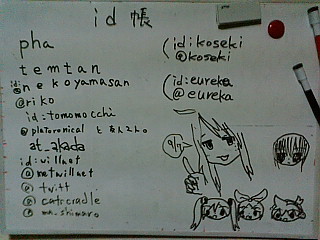 id 帳
pha
temtan
id:nekoyamasan
@riko
id:tomomocchi
@platoronical
at_akada
id:willnet
@netwillnet
@twitt
@catscradle
@ma_shimaro
id:koseki
@koseki
id:eureka
@eureka